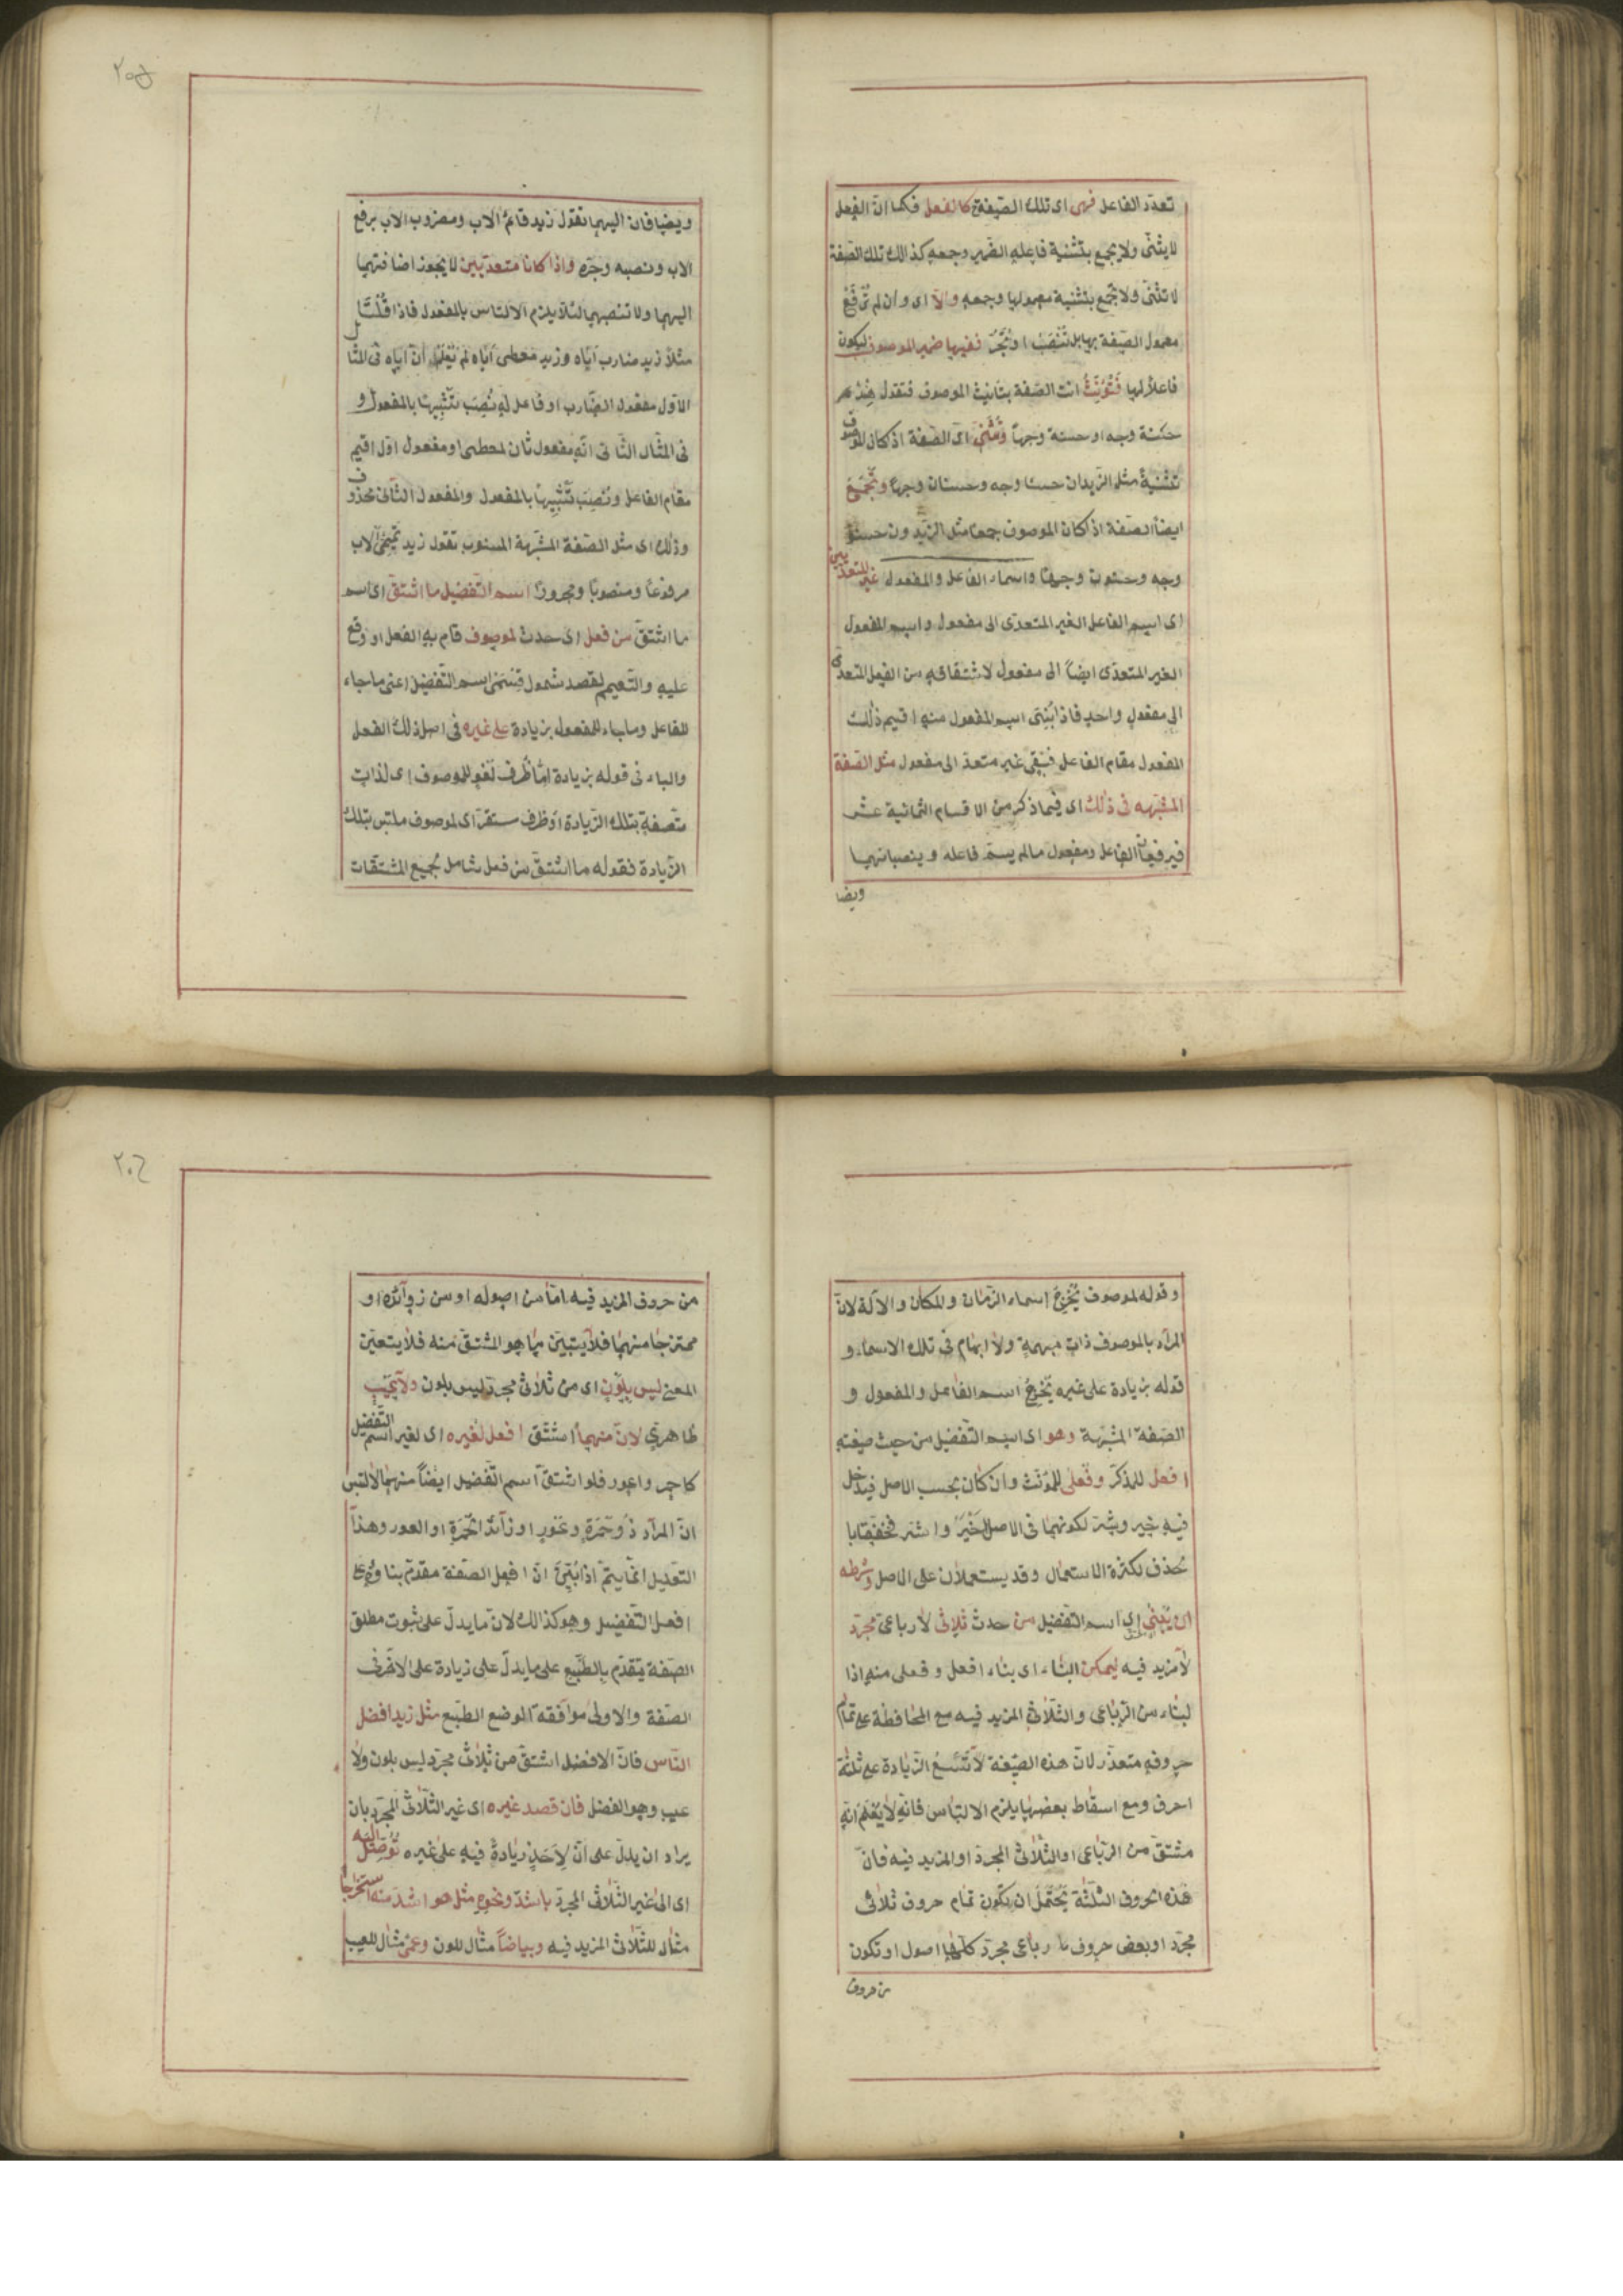 تعدّد الفاعل فهى اى تلك الصّيغة كالفعل فكما انّ الفعل
لا يثنّى ولا يجمع بتثنية فاعله الضّمير وجمعه كذالك تلك الصّفة
لا تثنّى ولا تجّمع بتثنية معمولها وجمعه والّا اى وان لم تُرفَعْ
معمول الصّفة بها بل تُنْصَبْ او تُجَّرْ ففيها ضمير الموصوف ليكون
فاعلاً لها فتُؤَنَّثُ انت الصّفة بتانيث الموصوف فتقول هِنْدٌ
حسنة وجه او حسنة وجهاً وتُثَنّىَ اى الصّفة اذ كان للموصوف
تثنيةً مثل الزّيدان حسنا وجه وحسنان وجهاً وتُجْمَعُ
ايضاً الصّفة اذ كان الموصوف جمعا مثل الزّيدون حسنو
وجه وحسنون وجهاً واسماء الفاعل والمفعول غير المتعدّيين
اى اسم الفاعل الغير المتعدّى الى مفعول واسم المفعول
الغير المتعدّى ايضاً الى مفعول لاشتقاقه من الفعل المتعدّى
الى مفعولٍ واحدٍ فاذا بُنِىَ اسم المفعول منه اقيم ذٰلك
المفعول مقام الفاعل فبَقِىَ غير متعدّ الى مفعول مثل الصّفة
المشبّهه فى ذٰلك اى فيما ذكر من الاقسام الثمانية عشر
فيرفعان الفاعل ومفعول مالم يسمّ فاعله وينصبانهما
ويضا
٢٠٥
ويضيافان اليهما تقول زيد قائمُ الاب ومضروب الاب برفع
الاب ونصبه وجرّه واذا كانا متعدّيين لا يجوز اضافتهما
اليهما ولا تنصبهما لئلّا يلزم الالتباس بالمفعول فاذا قُلْتَ
مثلاً زيد ضارب ايّاه وزيد معطى ايّاه لم يُعْلَمْ انّ ايّاه فى المثال
الاوّل مفعول الضّارب او فاعل له نُصِبَ تشْبِيهًا بالمفعول و
فى المثال الثّانى انّه مفعول ثان لمعطى او مفعول اوّل اقيم
مقام الفاعل ونُصِبَ تشْبِيهًا بالمفعول والمفعول الثّانى محذوف
وذلك اى مثل الصّفة المشبّهة المنسوب تقول زيد تَمِيمىُّ الاب
مرفوعاً ومنصوبًا ومجرورًا اسم التّفضيل ما اشتقّ اى اسم
ما اشتقّ من فعل اى حدث لموصوف قام به الفعل او وقع
عليه والتّعميم لقصد شمول قسمَىْ اسم التّفضيل اعنى ما جاء
للفاعل وما جاء للمفعول بزيادة على غيره فى اصل ذلك الفعل
والباء فى قوله بزيادة امّا ظرف لَغْو للموصوف اى لذات
متّصفةٍ بتلك الزّيادة او ظرف مستقرّ اى لموصوف ملتبس بتلك
الزّيادة فقوله ما اشتقّ من فعل شامل لجميع المشتقّات
وقوله لموصوف يُخْرِجُ اسماء الزّمان والمكان والآلة لانّ
المراد بالموصوف ذات مبهمةٍ ولا ابهام فى تلك الاسماء و
قوله بزيادة على غيره يخْرِجُ اسم الفاعل والمفعول و
الصّفة المشبّهة وهو اى اسم التّفضيل من حيث صيغته
افعل للمذكّر وفعلى للمؤنّث وان كان بحسب الاصل فيدخل
فيه خير وشرّ لكونهما فى الاصل اَخْيَرَ واشرّ فخففتا با
لحذف لكثرة الاستعمال وقد يستعملان على الاصل وشرطه
ان يُبْنىٰ اى اسم التّفضيل من حدث ثلاثىّ لا رباعىّ مجرّد
لا مزيد فيه ليمكن البناء اى بناء افعل وفعلى منه اذا
لبناء من الرّباعى والثّلاثىّ المزيد فيه مع المحافظة على تمام
حروفه متعذّر لانّ هذه الصّيغة لا تَتَسِعُ الزّيادة على ثلثة
احرف ومع اسقاط بعضها يلزم الالتباس فانّه لا يُعْلَمُ انّه
مشتقّ من الرّباعى او الثّلاثىّ المجرّد او المزيد فيه فانّ
هٰذه الحروف الثّلثة يُحْتَمَلُ ان يكون تمام حروف ثلاثى
مجرّد او بعض حروف رباعى مجرّد كلّها اصول او تكون
من حروف
٢٠٦
من حروف المزيد فيه امّا من اصوله او من زوآئده او
ممتزجا منهما فلا يتبيّن ما هو المشتقّ منه فلا يتعيّن
المعنى ليس بلَوْنٍ اى من ثلاثىّ مجرّد ليس بلون ولا عَيْبٍ
ظاهرىّ لانّ منهما اشتقّ افعل لغيره اى لغير اسم التّفضيل
كاحمر واعور فلو اشتقّ اسم التّفضيل ايضاً منهما لالتبس
انّ المراد ذُو حُمْرَةٍ وعَوَرٍ او زآئد الحُمْرَةِ او العور وهذا
التعليل انّما يتمّ اذا بُيِّنَ انّ افعل الصّفة مقدّم بناؤه على
افعل التّفضيل وهو كذالك لانّ ما يدلّ على ثبوت مطلق
الصّفة يتقدّم بالطّبع على ما يدلّ على زيادة على الاخر فى
الصّفة والاولى موافقة الوضع الطّبع مثل زيد افضل
النّاس فانّ الافضل اشتقّ من ثلاثىّ مجرّد ليس بلون ولا
عيب وهو الفضل فان قصد غيره اى غير الثّلاثىّ المجرّد بان
يراد ان يدلّ على انّ لاحدٍ زيادةً فيه على غيره تُوُصِّلَ اليه
اى الى غير الثّلاثى المجرّد باشدّ ونحوِه مثل هو اشدّ منه استخراجا
مثال للثّلاثىّ المزيد فيه وبياضاً مثال للون وعمىً مثال للعيب